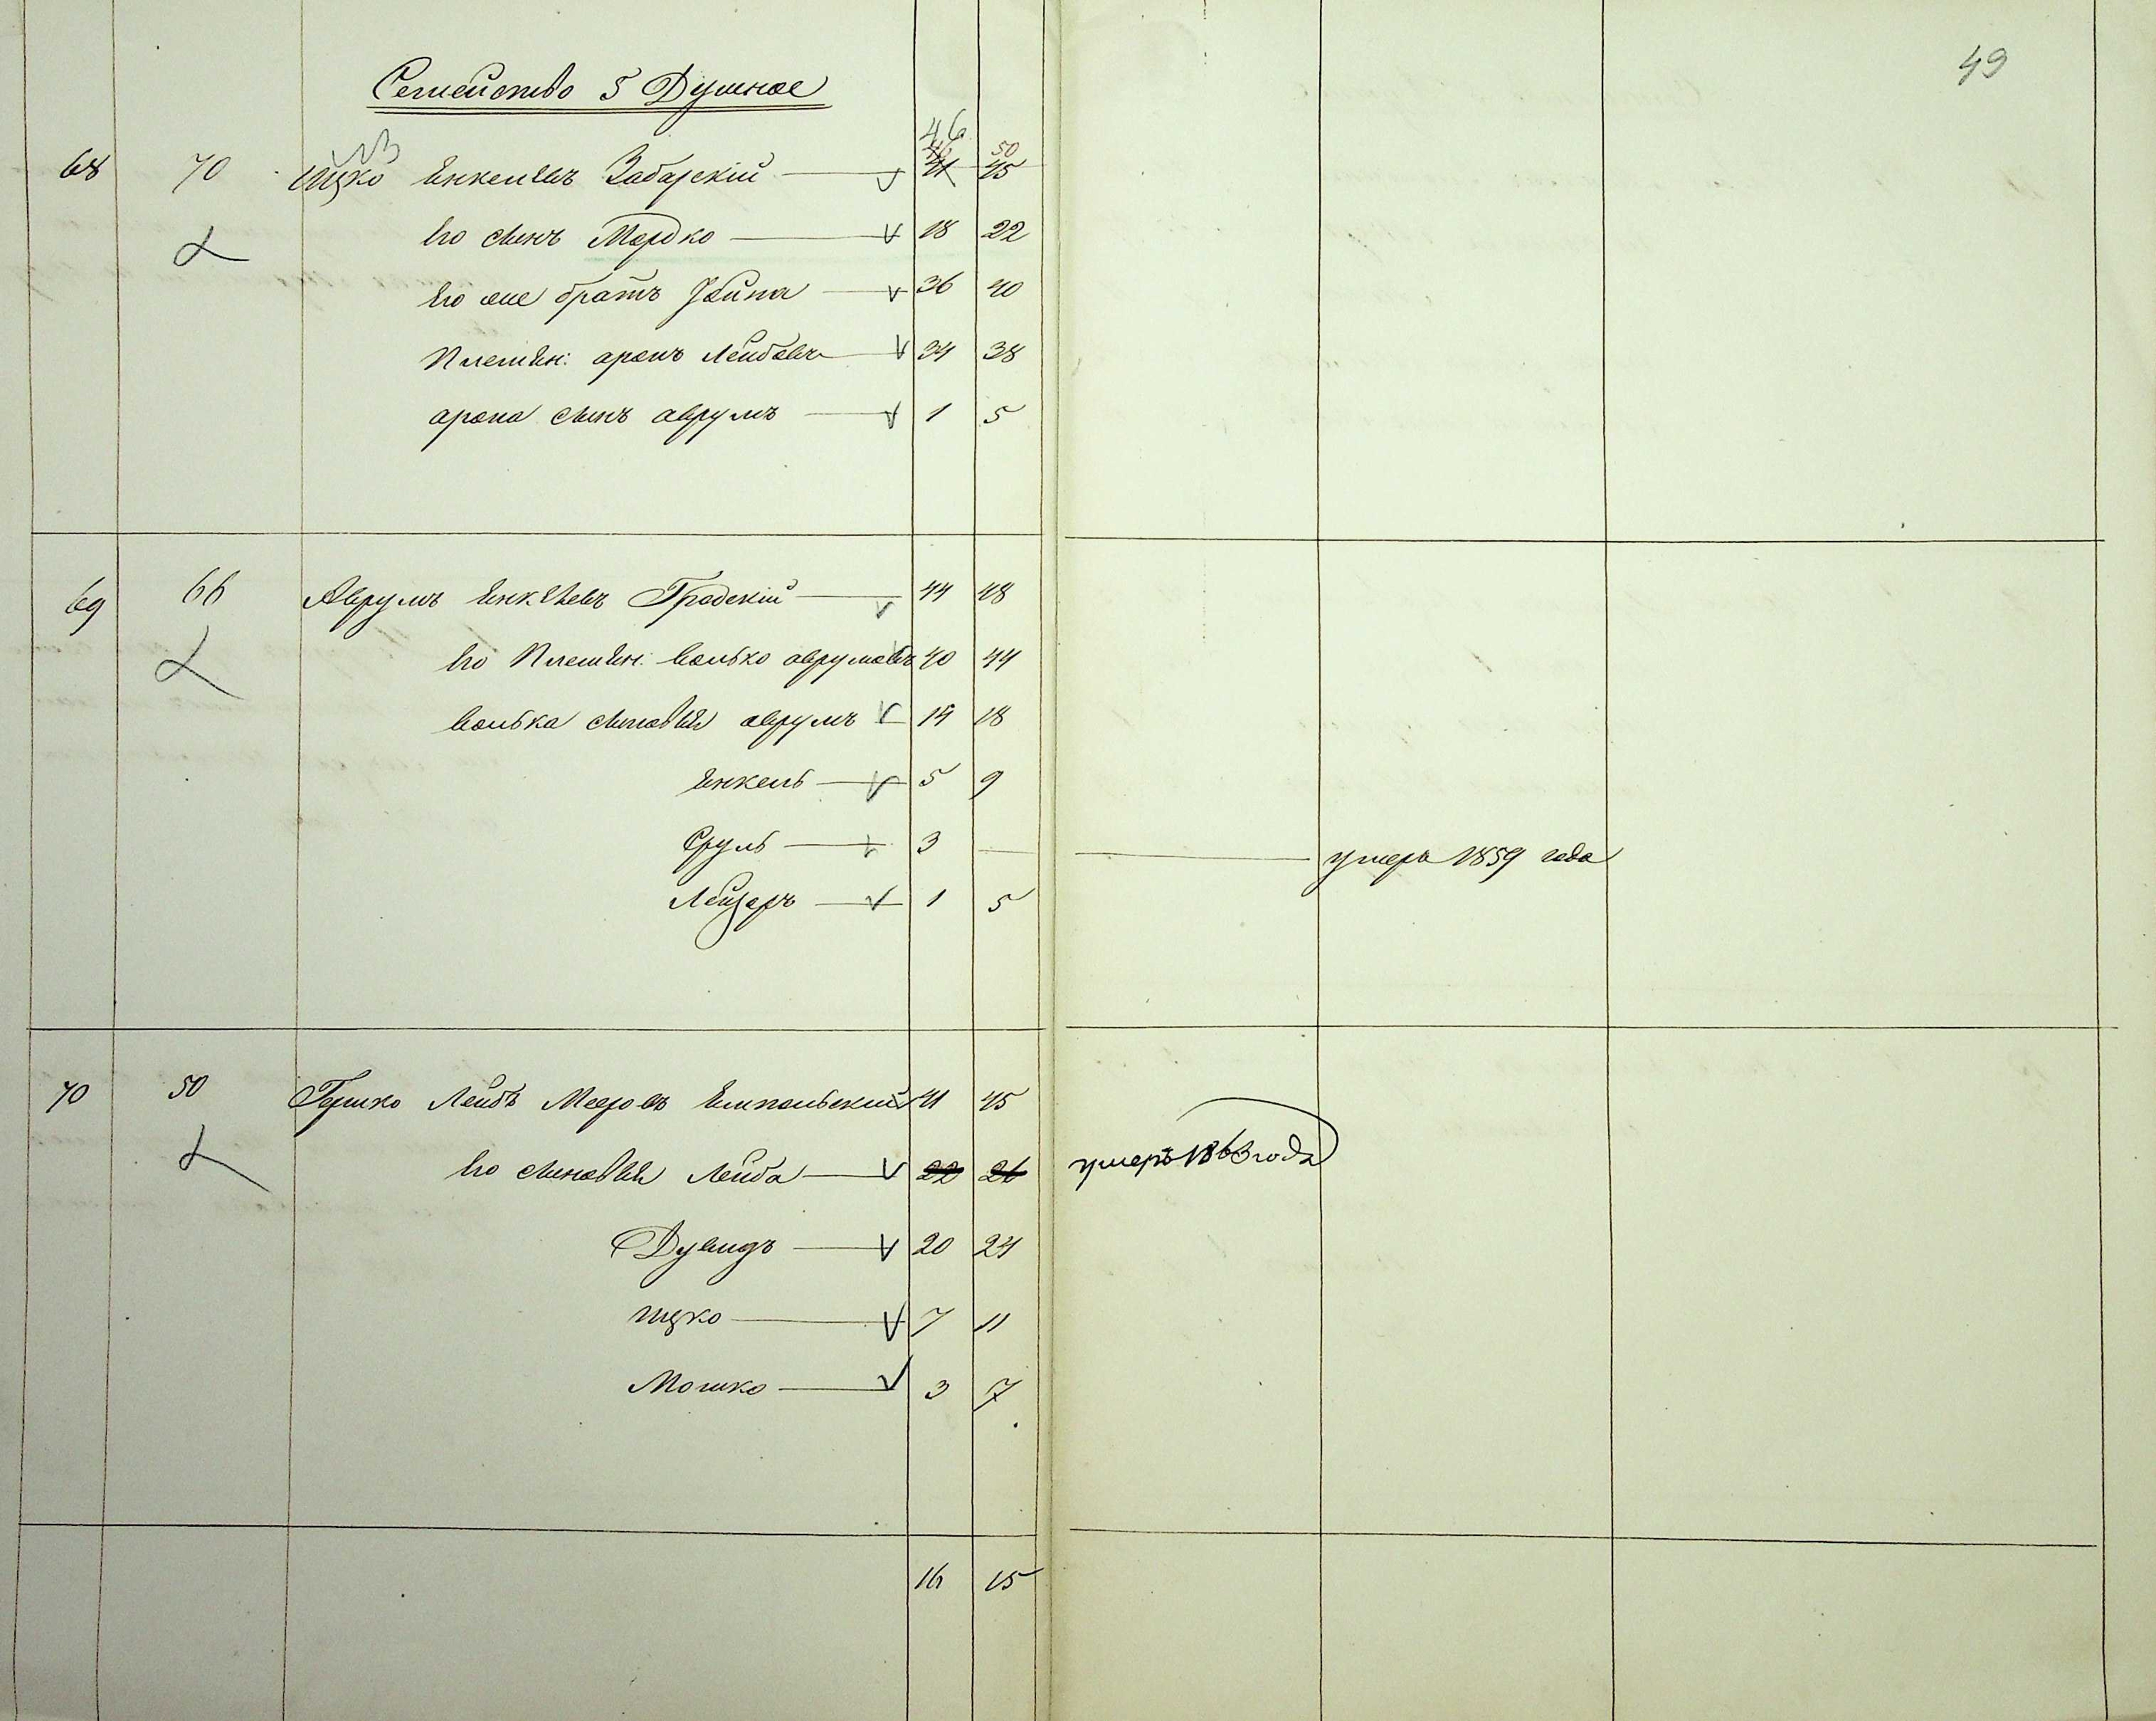 49
Семейство 5 Душное
46
46 50
68 70 Ицко Янкелевъ Забарскій 41 45
его сынъ Мордко 18 22
его же братъ 36 40
Племян: аронъ Лейбовъ 34 38
арона сынъ аврумъ 1 5
69 66 Аврумъ Янкелевъ Градскій 44 48
его Племян: волько аврумовъ 40 44
волька сыновья аврумъ 14 18
Янкель 5 9
Сруль 3 — умеръ 1859 года
Лейзеръ 1 5
70 50 Гершко Лейбъ Мееровъ Ямпольскій 41 45
его сыновья Лейба 22 26 умеръ 1863 года
Дувидъ 20 24
ицко 7 11
Мошко 3 7
16 15